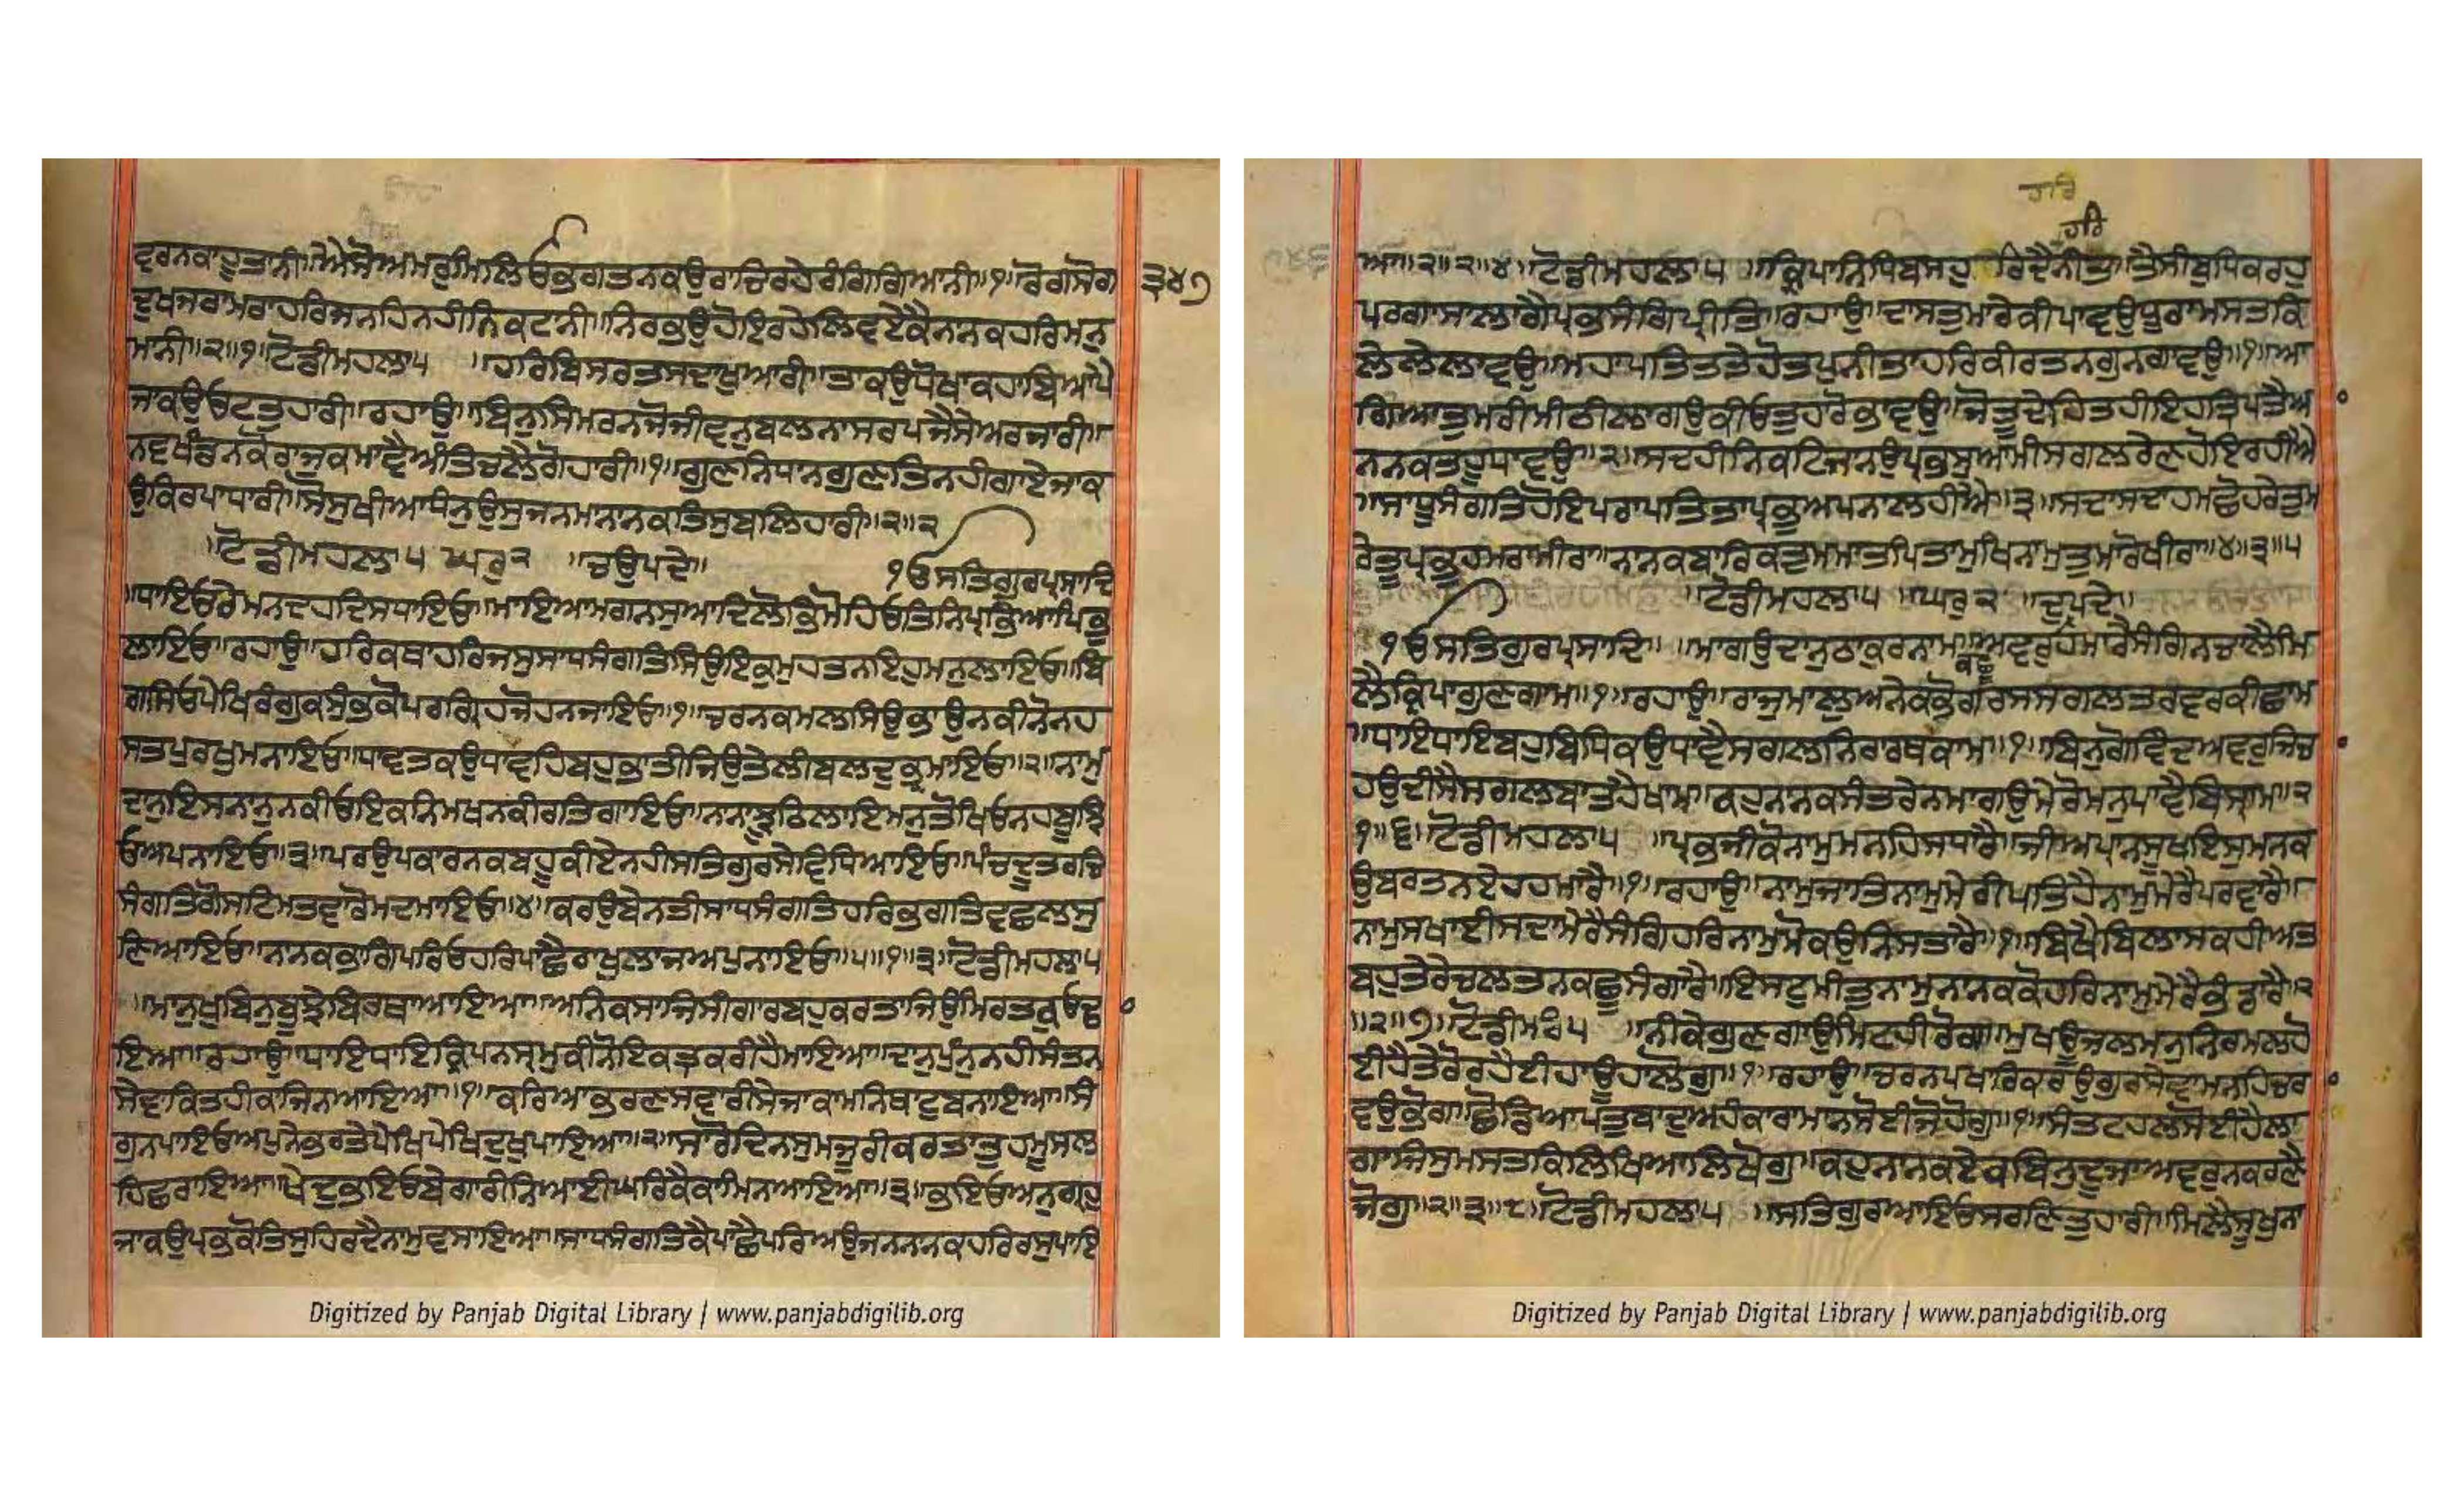 ਵਰਨਕਾਹੂਤਾਨੀ॥ਐਸੋਅਮਰੁਮਿਲਿਓਭਗਤਨਕਉਰਾਚਿਰਹੇਰੰਗਿਗਿਆਨੀ॥੧॥ਰੋਗਸੋਗ
੩੪੭
ਦੂਖਜਰਾਮਰਾਹਰਿਜਨਹਿਨਹੀਨਿਕਟਾਨੀ॥ਨਿਰਭਉਹੋਇਰਹੇਲਿਵਏਕੈਨਾਨਕਹਰਿਮਨੁ
ਮਾਨੀ॥੨॥੧॥ਟੋਡੀਮਹਲਾ੫ ॥ਹਰਿਬਿਸਰਤਸਦਾਖੁਆਰੀ॥ਤਾਕਉਧੋਖਾਕਹਾਬਿਆਪੈ
ਜਾਕਉਓਟਤੁਹਾਰੀ॥ਰਹਾਉ॥ਬਿਨੁਸਿਮਰਨਜੋਜੀਵਨੁਬਲਨਾਸਰਪਜੈਸੇਅਰਜਾਰੀ॥
ਨਵਖੰਡਨਕੋਰਾਜੁਕਮਾਵੈਅੰਤਿਚਲੈਗੋਹਾਰੀ॥੧॥ਗੁਣਨਿਧਾਨਗੁਣਤਿਨਹੀਗਾਏਜਾਕ
ਉਕਿਰਪਾਧਾਰੀ॥ਸੋਸੁਖੀਆਧੰਨੁਉਸੁਜਨਮਾਨਾਨਕਤਿਸੁਬਲਿਹਾਰੀ॥੨॥੨
॥ਟੋਡੀਮਹਲਾ੫ ਘਰੁ੨ ॥ਚਉਪਦੇ॥ ੧ਓਸਤਿਗੁਰਪ੍ਰਸਾਦਿ
॥ਧਾਇਓਰੇਮਨਦਹਦਿਸਧਾਇਓ॥ਮਾਇਆਮਗਨਸੁਆਦਿਲੋਭਿਮੋਹਿਓਤਿਨਿਪ੍ਰਭਿਆਪਿਭੁ
ਲਾਇਓ॥ਰਹਾਉ॥ਹਰਿਕਥਾਹਰਿਜਸੁਸਾਧਸੰਗਤਿਸਿਉਇਕੁਮੁਹਤਨਾਇਹੁਮਨੁਲਾਇਓ॥ਬਿ
ਗਸਿਓਪੇਖਿਰੰਗੁਕਸੁੰਭਕੋਪਰਗ੍ਰਿਹਜੋਹਨਜਾਇਓ॥੧॥ਚਰਨਕਮਲਸਿਉਭਾਉਨਕੀਨੋਨਹ
ਸਤਪੁਰਖੁਮਨਾਇਓ॥ਧਾਵਤਕਉਧਾਵਹਿਬਹੁਭਾਤੀਜਿਉਤੇਲੀਬਲਦੁਭ੍ਰਮਾਇਓ॥੨॥ਨਾਮੁ
ਦਾਨੁਇਸਨਾਨੁਨਕੀਓਇਕਨਿਮਖਨਕੀਰਤਿਗਾਇਓ॥ਨਾਨਾਝੂਠਿਲਾਇਮਨੁਤੋਖਿਓਨਹਬੂਝਿ
ਓਅਪਨਾਇਓ॥੩॥ਪਰਉਪਕਾਰਨਕਬਹੂਕੀਏਨਹੀਸਤਿਗੁਰਸੇਵਿਧਿਆਇਓ॥ਪੰਚਦੂਤਰਚਿ
ਸੰਗਤਿਗੋਸਟਿਮਤਵਾਰੋਮਦਮਾਇਓ॥੪॥ਕਰਉਬੇਨਤੀਸਾਧਸੰਗਤਿਹਰਿਭਗਤਿਵਛਲਸੁ
ਣਿਆਇਓ॥ਨਾਨਕਭਾਗਿਪਰਿਓਹਰਿਪਾਛੈਰਾਖੁਲਾਜਅਪੁਨਾਇਓ॥੫॥੧॥੩॥ਟੋਡੀਮਹਲਾ੫
॥ਮਾਨੁਖੁਬਿਨੁਬੂਝੇਬਿਰਥਾਆਇਆ॥ਅਨਿਕਸਾਜਸੀਗਾਰਬਹੁਕਰਤਾਜਿਉਮਿਰਤਕੁਓਢਾ
ਇਆ॥ਰਹਾਉ॥ਧਾਇਧਾਇਕ੍ਰਿਪਨਸ੍ਰਮੁਕੀਨੋਇਕਤ੍ਰਕਰੀਹੈਮਾਇਆ॥ਦਾਨੁਪੁੰਨੁਨਹੀਸੰਤਨ
ਸੇਵਾਕਿਤਹੀਕਾਜਿਨਆਇਆ॥੧॥ਕਰਿਆਭਰਣਸਵਾਰੀਸੇਜਾਕਾਮਨਿਥਾਟੁਬਨਾਇਆ॥ਸੰ
ਗੁਨਪਾਇਓਅਪੁਨੇਭਰਤੇਪੇਖਿਪੇਖਿਦੁਖੁਪਾਇਆ॥੨॥ਸਾਰੋਦਿਨਸੁਮਜੂਰੀਕਰਤਾਤੁਹਮੂਸਲ
ਹਿਛਰਾਇਆ॥ਖੇਦੁਭਇਓਬੇਗਾਰੀਨਿਆਈਘਰਿਕੈਕਾਮਿਨਆਇਆ॥੩॥ਭਇਓਅਨੁਗ੍ਰਹੁ
ਜਾਕਉਪ੍ਰਭਕੋਤਿਸੁਹਿਰਦੈਨਾਮੁਵਸਾਇਆ॥ਸਾਧਸੰਗਤਿਕੈਪਾਛੈਪਰਿਅਉਜਨਨਾਨਕਹਰਿਰਸੁਪਾਇ
ਹਰਿ
ਹਰਿ
ਆ॥੨॥੨॥੪॥ਟੋਡੀਮਹਲਾ੫ ॥ਕ੍ਰਿਪਾਨਿਧਿਬਸਹੁ ਰਿਦੈਨੀਤਾ॥ਤੈਸੀਬੁਧਿਕਰਹੁ
ਪਰਗਾਸਾਲਾਗੈਪ੍ਰਭਸੰਗਿਪ੍ਰੀਤਿ॥ਰਹਾਉ॥ਦਾਸਤੁਮਾਰੇਕੀਪਾਵਉਧੂਰਾਮਸਤਕਿ
ਲੇਲੇਲਾਵਉ॥ਮਹਾਪਤਿਤਤੇਹੋਤਪੁਨੀਤਾਹਰਿਕੀਰਤਨਗੁਨਗਾਵਉ॥੧॥ਆ
ਗਿਆਤੁਮਰੀਮੀਠੀਲਾਗਉਕੀਓਤੁਹਾਰੋਭਾਵਉ॥ਜੋਤੂਦੇਹਿਤਹੀਇਹੁਤ੍ਰਿਪਤੈਆ
ਨਨਕਤਹੂਧਾਵਉ॥੨॥ਸਦਹੀਨਿਕਟਿਜਾਨਉਪ੍ਰਭਸੁਆਮੀਸਗਲਰੇਣਹੋਇਰਹੀਐ
॥ਸਾਧੂਸੰਗਤਿਹੋਇਪਰਾਪਤਿਤਾਪ੍ਰਭੁਅਪਨਾਲਹੀਐ॥੩॥ਸਦਾਸਦਾਹਮਛੋਹਰੇਤੁਮ
ਰੇਤੂਪ੍ਰਭੁਹਮਰੋਮੀਰਾ॥ਨਾਨਕਬਾਰਿਕਤੁਮਮਾਤਪਿਤਾਮੁਖਿਨਾਮੁਤੁਮਾਰੋਖੀਰਾ॥੪॥੩॥੫
॥ਟੋਡੀਮਹਲਾ੫ ॥ਘਰੁ੨ ॥ਦੁਪਦੇ॥
੧ਓਸਤਿਗੁਰਪ੍ਰਸਾਦਿ॥ ॥ਮਾਗਉਦਾਨੁਠਾਕੁਰਨਾਮ॥ਅਵਰੁਹਮਾਰੈਸੰਗਿਨਚਾਲੈਮਿ
ਕਛੂ
ਲੈਕ੍ਰਿਪਾਗੁਣਗਾਮ॥੧॥ਰਹਾਉ॥ਰਾਜੁਮਾਲੁਅਨੇਕਭੋਗਰਸਸਗਲਤਰਵਰਕੀਛਾਮ
॥ਧਾਇਧਾਇਬਹੁਬਿਧਿਕਉਧਾਵੈਸਗਲਨਿਰਾਰਥਕਾਮ॥੧॥ਬਿਨੁਗੋਵਿੰਦਅਵਰੁਜਿਚ
ਹਉਦੀਸੈਸਗਲਬਾਤਹੈਖਾਮ॥ਕਹੁਨਾਨਕਸੰਤਰੇਨਮਾਗਉਮੇਰੋਮਨੁਪਾਵੈਬਿਸ੍ਰਾਮ॥੨
੧॥੬॥ਟੋਡੀਮਹਲਾ੫ ॥ਪ੍ਰਭਜੀਕੋਨਾਮੁਮਨਹਿਸਾਧਾਰੈ॥ਜੀਅਪ੍ਰਾਨਸੂਖਇਸੁਮਨਕ
ਉਬਰਤਨਏਹਹਮਾਰੈ॥੧॥ਰਹਾਉ॥ਨਾਮੁਜਾਤਿਨਾਮੁਮੇਰੀਪਤਿਹੈਨਾਮੁਮੇਰੈਪਰਵਾਰੈ॥
ਨਾਮੁਸਖਾਈਸਦਾਮੇਰੈਸੰਗਿਹਰਿਨਾਮੁਮੋਕਉਨਿਸਤਾਰੈ॥੧॥ਬਿਖੈਬਿਲਾਸਕਹੀਅਤ
ਬਹੁਤੇਰੇਚਲਤਨਕਛੂਸੰਗਾਰੈ॥ਇਸਟੁਮੀਤੁਨਾਮੁਨਾਨਕਕੋਹਰਿਨਾਮੁਮੇਰੈਭੰਡਾਰੈ॥੨
॥੨॥੭॥ਟੋਡੀਮਃ੫ ॥ਨੀਕੇਗੁਣਗਾਉਮਿਟਹੀਰੋਗ॥ਮੁਖਊਜਲਮਨੁਨਿਰਮਲਹੋ
ਈਹੈਤੇਰੋਰਹੈਈਹਾਊਹਾਲੋਗੁ॥੧॥ਰਹਾਉ॥ਚਰਨਪਖਾਰਿਕਰਉਗੁਰਸੇਵਾਮਨਹਿਚਰਾ
ਵਉਭੋਗ॥ਛੋਡਿਆਪਤੁਬਾਦੁਅਹੰਕਾਰਾਮਾਨੁਸੋਈਜੋਹੋਗੁ॥੧॥ਸੰਤਟਹਲਸੋਈਹੈਲਾ
ਗਾਜਿਸੁਮਸਤਕਿਲਿਖਿਆਲਿਖੋਗੁ॥ਕਹੁਨਾਨਕਏਕਬਿਨੁਦੂਜਾਅਵਰੁਨਕਰਣੈ
ਜੋਗੁ॥੨॥੩॥੮॥ਟੋਡੀਮਹਲਾ੫ ॥ਸਤਿਗੁਰਆਇਓਸਰਣਿਤੁਹਾਰੀ॥ਮਿਲੈਸੂਖੁਨਾ
Digitized by Panjab Digital Library | www.panjabdigilib.org
Digitized by Panjab Digital Library | www.panjabdigilib.org